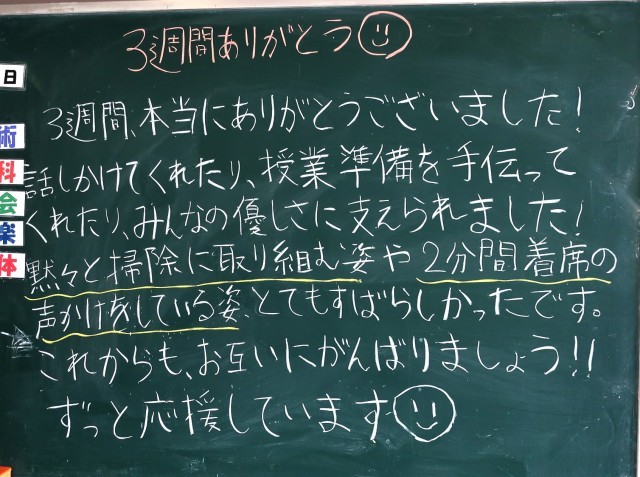 3週間ありがとう
3週間、本当にありがとうございました!
話しかけてくれたり、授業準備を手伝って
くれたり、みんなの優しさに支えられました!
黙々と掃除に取り組む姿や2分間着席の
声かけをしている姿、とてもすばらしかったです。
これからも、お互いにがんばりましょう!!
ずっと応援しています
日
術
科
会
楽
体